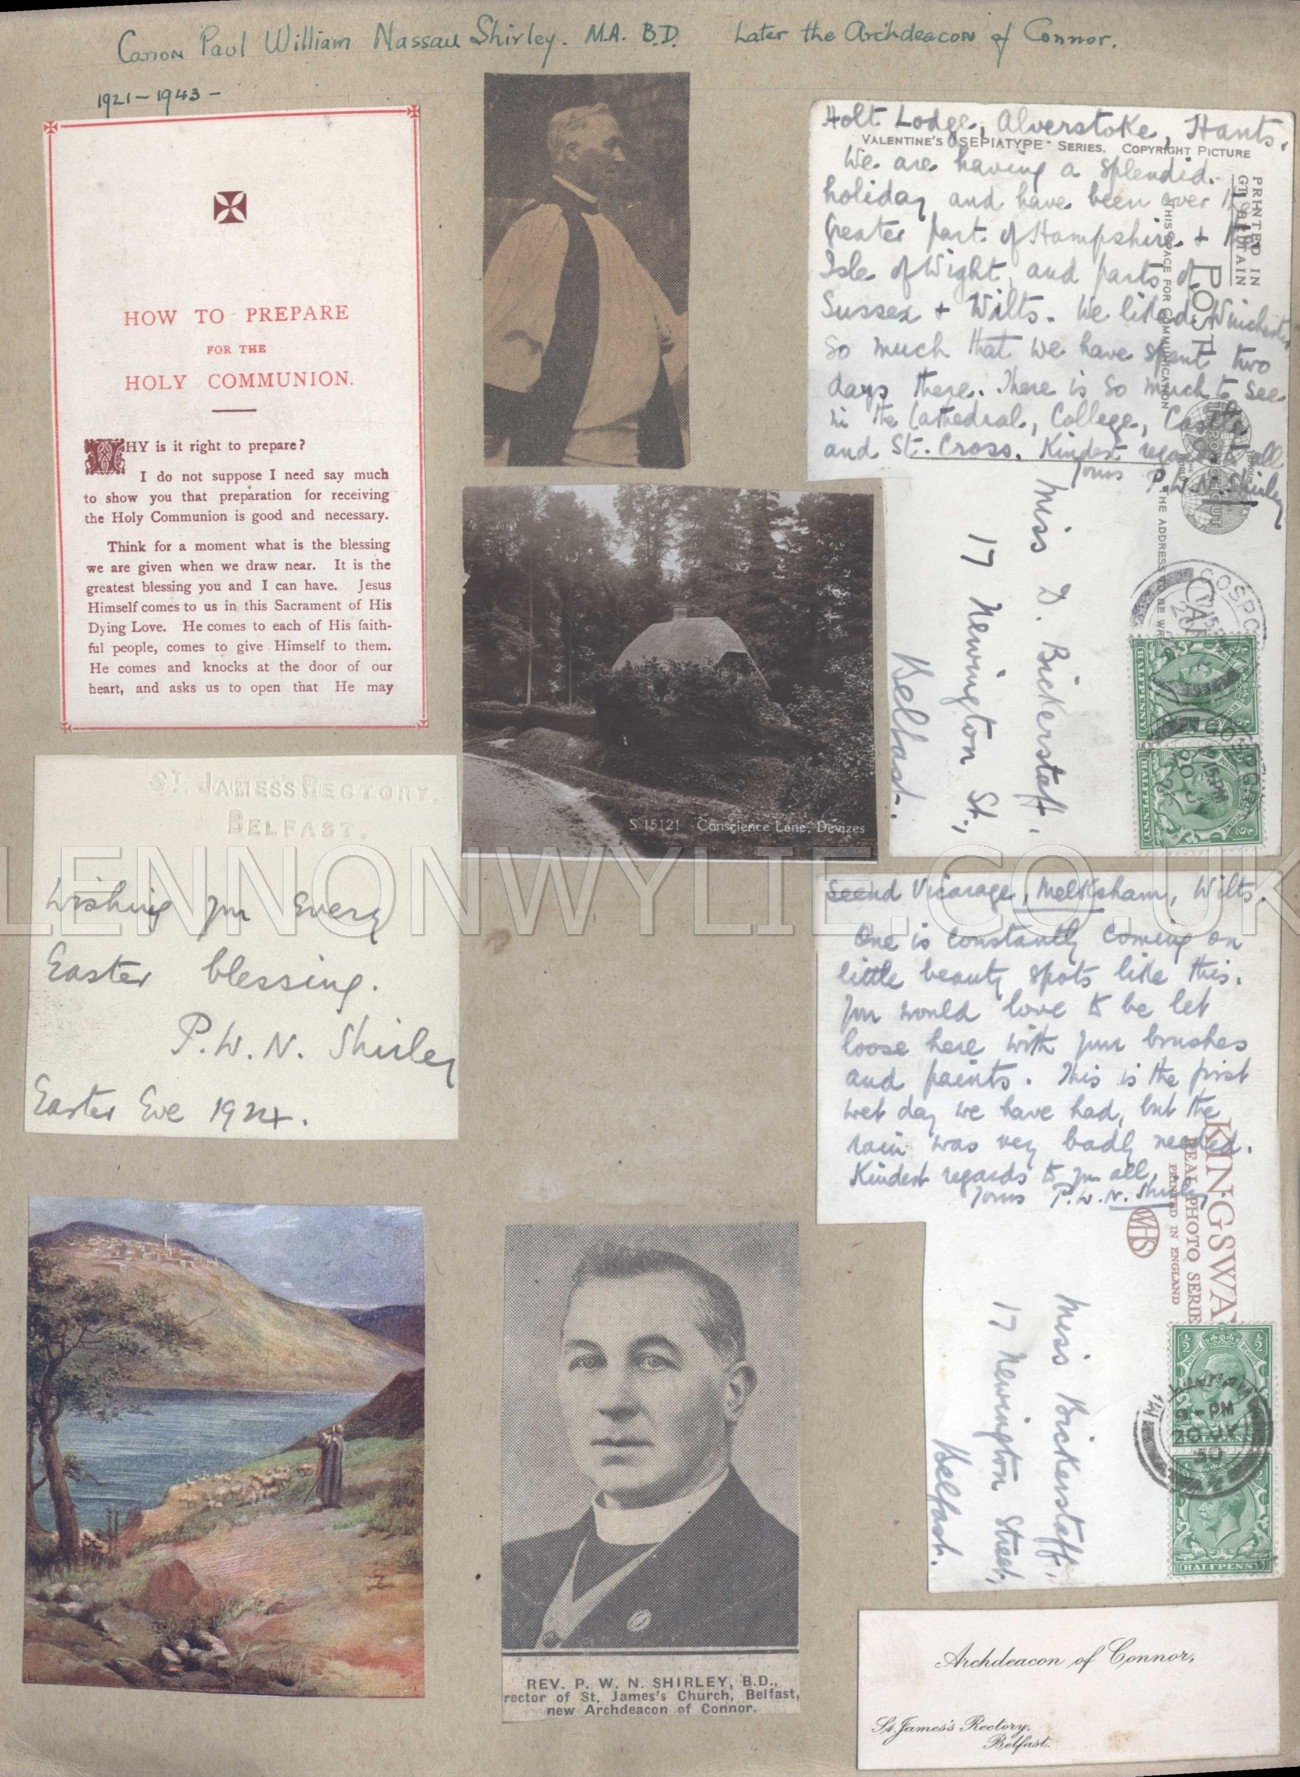 Canon Paul William Nassau Shirley. M.A. B.D. Later the Archdeacon of Connor.
1921-1943-
HOW TO PREPARE
FOR THE
HOLY COMMUNION.
WHY is it right to prepare?
I do not suppose I need say much
to show you that preparation for receiving
the Holy Communion is good and necessary.
Think for a moment what is the blessing
we are given when we draw near. It is the
greatest blessing you and I can have. Jesus
Himself comes to us in this Sacrament of His
Dying Love. He comes to each of His faith-
ful people, comes to give Himself to them.
He comes and knocks at the door of our
heart, and asks us to open that He may
Holt Lodge, Alverstoke, Hants.
VALENTINE'S "SEPIATYPE" SERIES. COPYRIGHT PICTURE
We are having a splendid
holiday and have been over the
Greater part of Hampshire & the
Isle of Wight, and parts of
Sussex & Wilts. We liked Winchester
so much that we have spent two
days there. There is so much to see
in the Cathedral, College, Castle
and St. Cross. Kindest regards to all
Yours P.W.N. Shirley
PRINTED IN
GT BRITAIN
POST
CAR
THIS SPACE FOR COMMUNICATION
THE ADDRESS TO BE WR
Miss D. Bickerstaff,
17 Newington St.,
Belfast.
GOSPO
HALFPENNY
HALFPENNY
S 15121 Conscience Lane, Devizes
ST. JAMES'S RECTORY.
BELFAST.
Wishing you every
Easter blessing.
P.W.N. Shirley
Easter Eve 1924.
LENNONWYLIE.CO.UK
Seend Vicarage, Melksham, Wilts.
One is constantly coming on
little beauty spots like this.
You would love to be let
loose here with your brushes
and paints. This is the first
wet day we have had, but the
rain was very badly needed.
Kindest regards to you all,
Yours P.W.N. Shirley
KINGSWAY
REAL PHOTO SERIE
PRINTED IN ENGLAND
WHS
Miss Bickerstaff,
17 Newington Street,
Belfast.
9-PM
20 JY
HALFPENNY
REV. P. W. N. SHIRLEY, B.D.,
rector of St. James's Church, Belfast,
new Archdeacon of Connor.
Archdeacon of Connor,
St. James's Rectory,
Belfast.